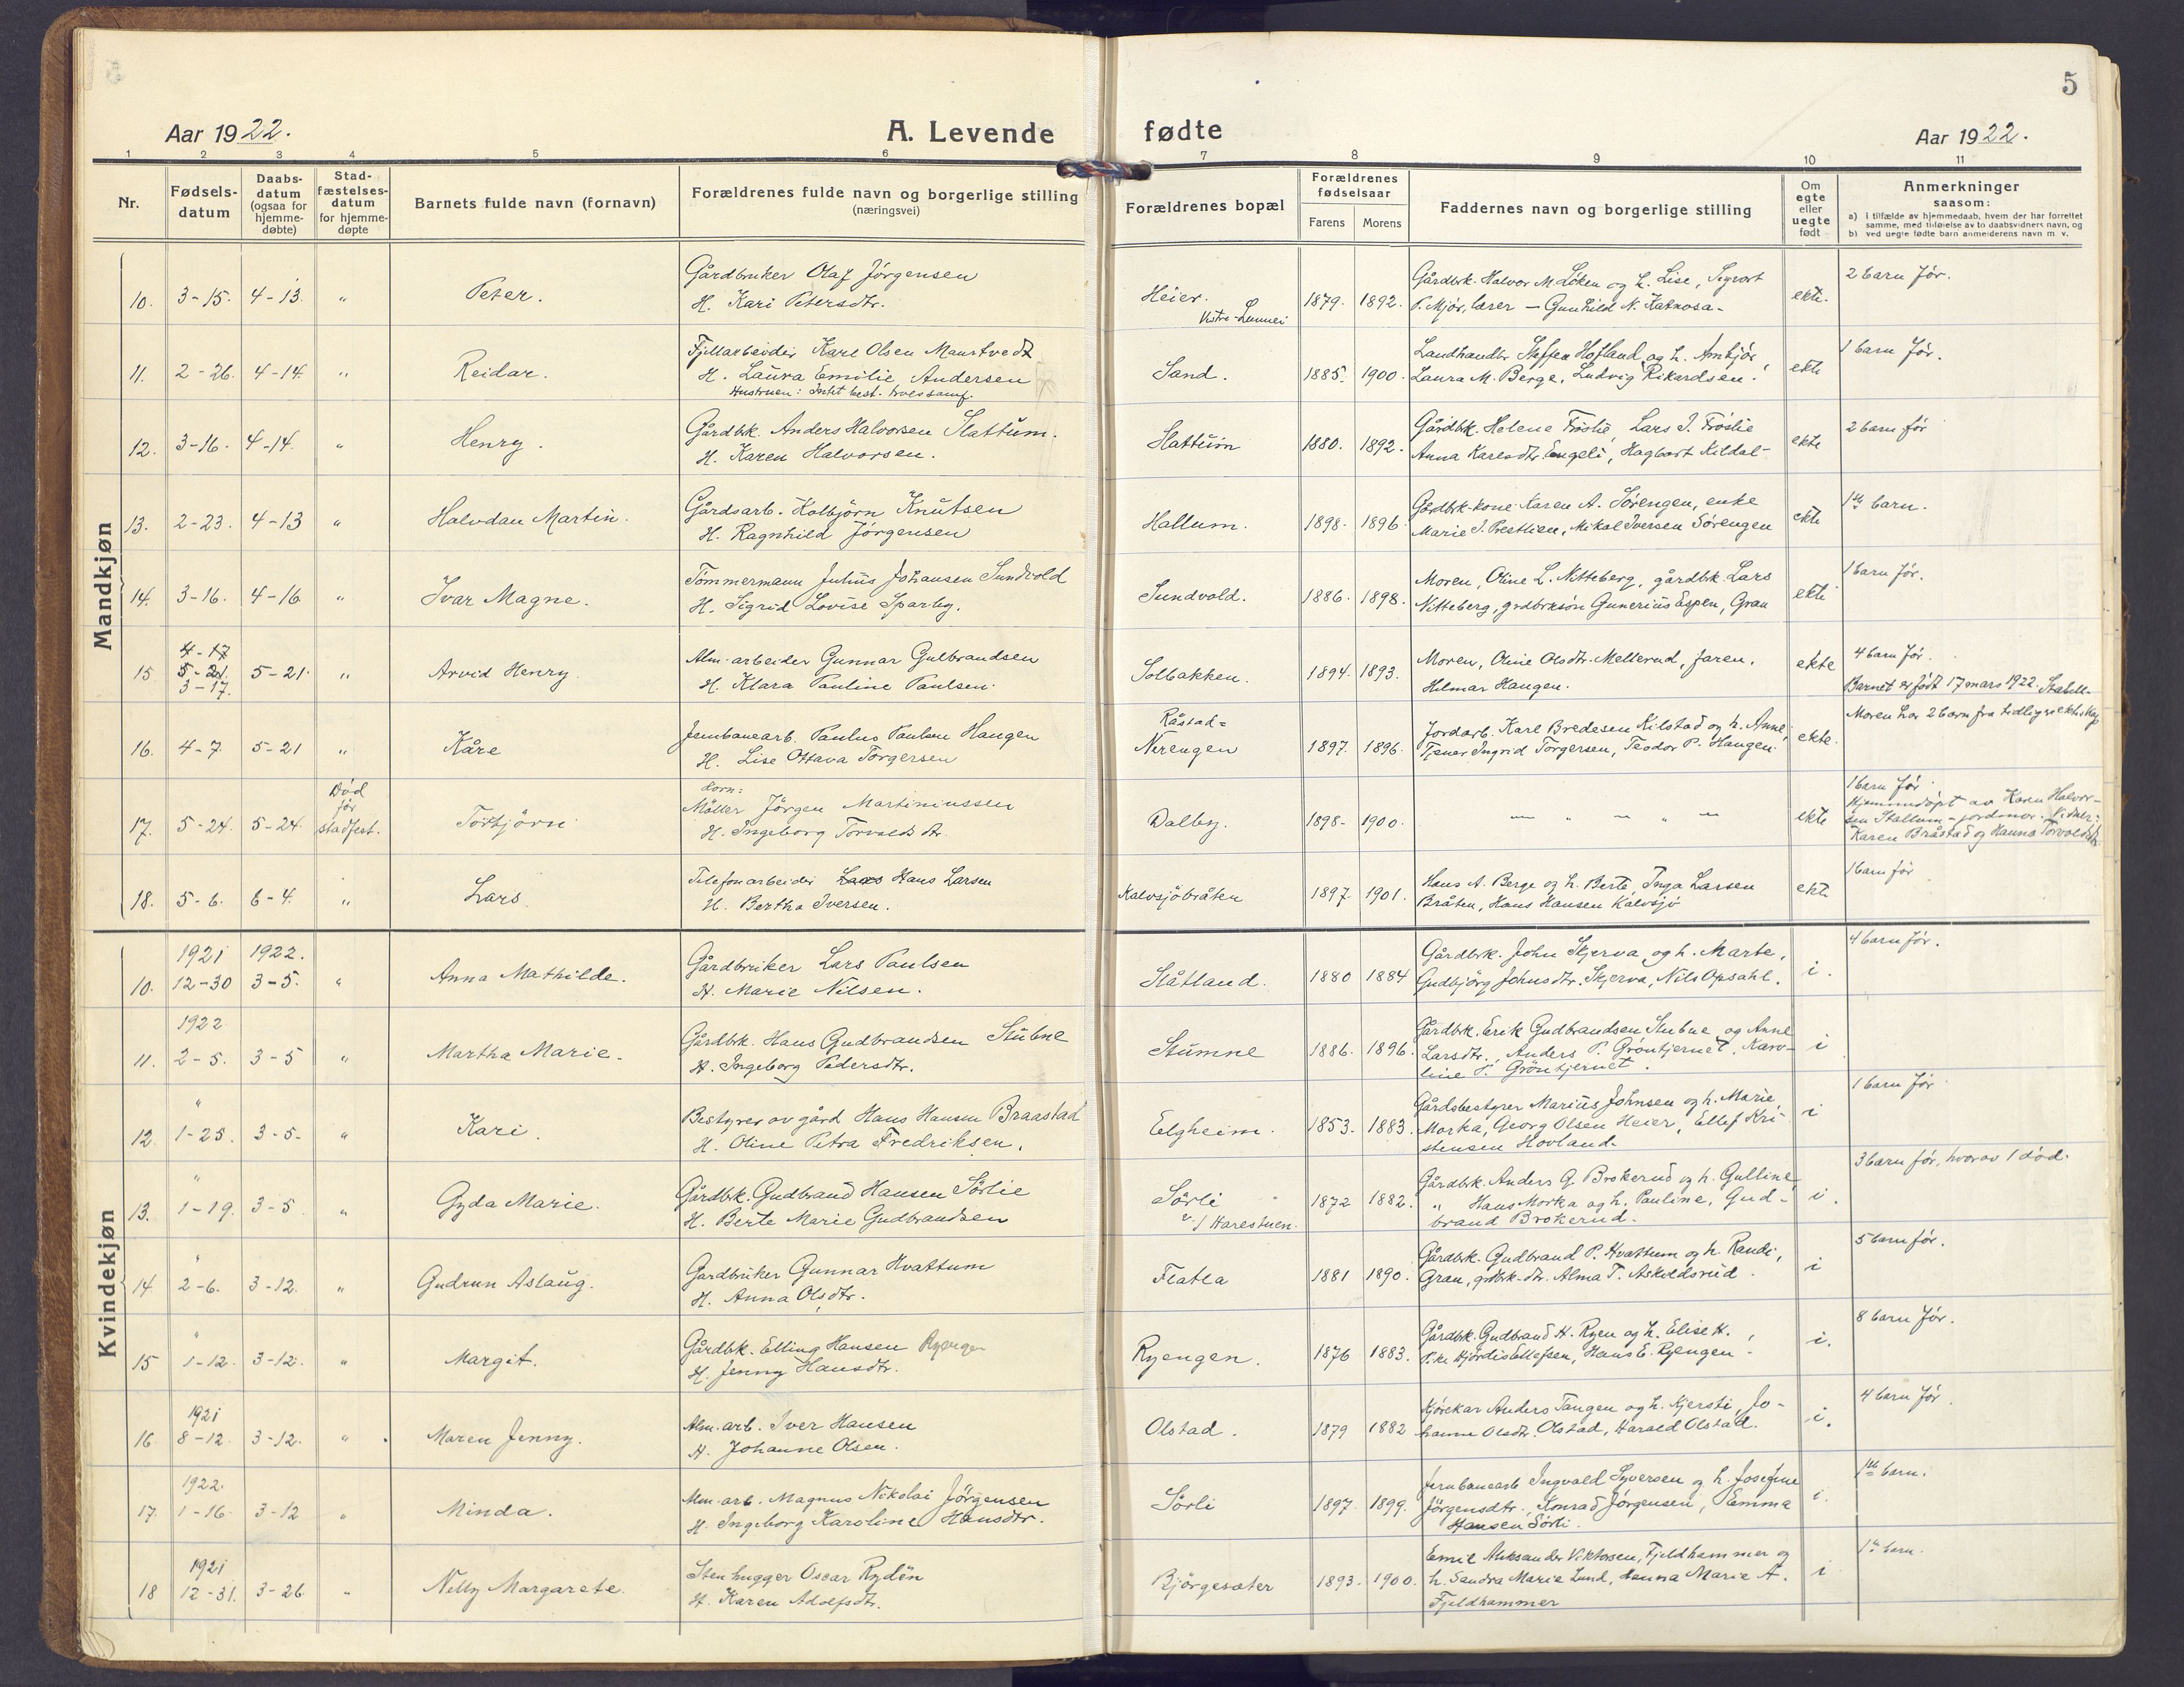 5
Aar 1922.
A. Levende
fødte
Aar 1922.
1 2 3 4 5 6 7 8 9 10 11
Nr.
Fødsels-
datum
Daabs-
datum
(ogsaa for
hjemme-
døbte)
Stad-
fæstelses-
datum
for hjemme-
døpte
Barnets fulde navn (fornavn)
Forældrenes fulde navn og borgerlige stilling
(næringsvei)
Forældrenes bopæl
Forældrenes
fødselsaar
Farens Morens
Faddernes navn og borgerlige stilling
Om
egte
eller
uegte
født
Anmerkninger
saasom:
a) i tilfælde av hjemmedaab, hvem der har forrettet
samme, med tilføielse av to daabsvidners navn, og
b) ved uegte fødte barn anmelderens navn m. v.
Mandkjøn
10. 3-15. 4-13. " Peter.
Gårdbruker Olaf Jörgensen
H. Kari Petersdtr.
Heier.
Vestre-Lunner
1879. 1892.
Gårdbk. Halvor M. Löken og h. Lise, Sigvart
P. Mjör, lærer — Gunhild N. Katnosa-
ekte.
2 barn för.
11. 2-26. 4-14. " Reidar.
Fjellarbeider Karl Olsen Maurtvedt
H. Laura Emilie Andersen
Hustruen: Intet best. troessamf.
Sand.
1885. 1900.
Landhandler Steffen Hofland og h. Ambjör,
Laura M. Berge, Ludvig Rikardsen.
ekte
1 barn för.
12. 3-16. 4-14. " Henry.
Gårdbk. Anders Halvorsen Slattum.
H. Karen Halvorsen.
Slattum
1880. 1892.
Gårdbk. Helene Fröslie, Lars J. Fröslie
Anna Karlsdtr. Engeli, Hagbart Kildal-
ekte
2 barn för
13. 2-23. 4-13 " Halvdan Martin.
Gårdsarb. Kolbjörn Knutsen
H. Ragnhild Jörgensen
Hallum.
1898- 1896
Gårdbk-kone Karen A. Sörengen, enke
Marie J. Prestlien, Mikal Iversen Sörengen
ekte
1ste barn.
14. 3-16. 4-16 " Ivar Magne.
Tömmermann Julius Johansen Sundvold
H. Sigrid Lovise Sparby.
Sundvold.
1886. 1898.
Moren, Oline L. Nitteberg, gårdbk. Lars
Nitteberg, grdbrksön Gunerius Espen, Gran
ekte
1 barn för.
15 4-17 5-21. 3-17. 5-21. " Arvid Henry
Alm. arbeider Gunnar Gulbrandsen
H. Klara Pauline Paulsen.
Solbakken.
1894. 1893.
Moren, Oline Olsdtr. Mellerud, Jaren.
Hilmar Haugen.
ekte
4 barn för.
Barnet er födt 17 mars 1922.
16. 4-7. 5-21 " Kåre
Jernbanearb. Paulus Paulsen Haugen
H. Lise Ottava Torgersen
Råstad=
Nerengen
1897. 1896.
Jordarb. Karl Bredesen Kilstad og h. Anne,
Tjener Ingrid Torgersen, Teodor P. Haugen.
ekte.
Moren har 2 barn fra tidligere ekteskap
17. 5-24. 5-24.
Död
för
stadfest.
Torbjörn
Korn=
Möller Jörgen Martiniussen
H. Ingeborg Torvaldsdtr.
Dalby.
1898- 1900.
— " — " —
ekte
1 barn för
Hjemmedöpt av Karen Halvor-
sen Slattum - jordmor. Vidner:
Karen Bråstad og Hanna Torvaldsdtr.
18. 5-6. 6-4. " Lars
Telefonarbeider Lars Hans Larsen
H. Bertha Iversen.
Kalvsjöbråten
1897 1901.
Hans A. Berge og h. Berte, Inga Larsen
Bråten, Hans Hansen Kalvsjö
ekte
1 barn för
Kvindekjøn
1921 1922.
10. 12-30 3-5. " Anna Mathilde.
Gårdbruker Lars Paulsen
H. Marie Nilsen.
Slåtland.
1880 1884
Gårdbrk. John Skjerva og h. Marte,
Gudbjörg Johnsdtr. Skjerva, Nils Opsahl.
i.
4 barn för.
1922
11. 2-5. 3-5 " Martha Marie.
Gårdbk. Hans Gudbrandsen Stubne
H. Ingeborg Pedersdtr.
Stumne
1886. 1896.
Gårdbk. Erik Gudbrandsen Stubne og Anne
Larsdtr., Anders P. Gröntjernet, Karo-
line P. Gröntjernet.
i
"
12. 1-25. 3-5. " Kari.
Bestyrer av gård Hans Hansen Braastad
H. Oline Petra Fredriksen.
Elgheim.
1853. 1883.
Gårdsbestyrer Marius Johnsen og h. Marie,
Morka, Georg Olsen Heier, Ellef Kri-
stensen Hovland.
i
1 barn för
"
13. 1-19. 3-5 " Gyda Marie.
Gårdbk. Gudbrand Hansen Sörlie
H. Berte Marie Gudbrandsen
Sörli
v/ Harestuen.
1872 1882.
Gårdbk. Anders G. Brokerud og h. Gulline,
" Hans Morka og h. Pauline, Gud-
brand Brokerud.
i.
3 barn för, hvorav 1 död.
"
14 2-6. 3-12. " Gudrun Aslaug.
Gardbruker Gunnar Hvattum
H. Anna Olsdtr.
Flatla
1881 1890.
Gårdbk. Gudbrand P. Hvattum og h. Randi,
Gran, grdbk-dtr. Alma T. Askeldsrud.
i
5 barn för.
"
15 1-12. 3-12. " Margit.
Gårdbk. Elling Hansen Ryengen
H. Jenny Hansdtr.
Ryengen.
1876 1883.
Gårdbk. Gudbrand H. Ryen og h. Elise H.,
Pike Hjördis Ellefsen, Hans E. Ryengen.
i.
8 barn för.
1921
16 8-12. 3-12. " Maren Jenny.
Alm. arb. Iver Hansen
H. Johanne Olsen.
Olstad.
1879 1882
Kjörekar Anders Tangen og h. Kjersti, Jo-
hanne Olsdtr. Olstad, Harald Olstad.
i.
4 barn för.
1922.
17. 1-16. 3-12 " Minda.
Alm. arb. Magnus Nikolai Jörgensen
H. Ingeborg Karoline Hansdtr.
Sörli
1897. 1899.
Jernbanearb Ingvald Syversen og h. Josefine
Jörgensdtr., Konrad Jörgensen, Emma
Hansen Sörli.
i.
1ste barn.
1921
18 12-31. 3-26 " Nelly Margarete.
Stenhugger Oscar Rydén
H. Karen Adolfsdtr.
Björgesæter
1893. 1900.
Emil Aleksander Viktorsen, Fjeldhammer og
h. Sandra Marie Lund, Hanna Marie A.
Fjeldhammer
i
1ste barn.